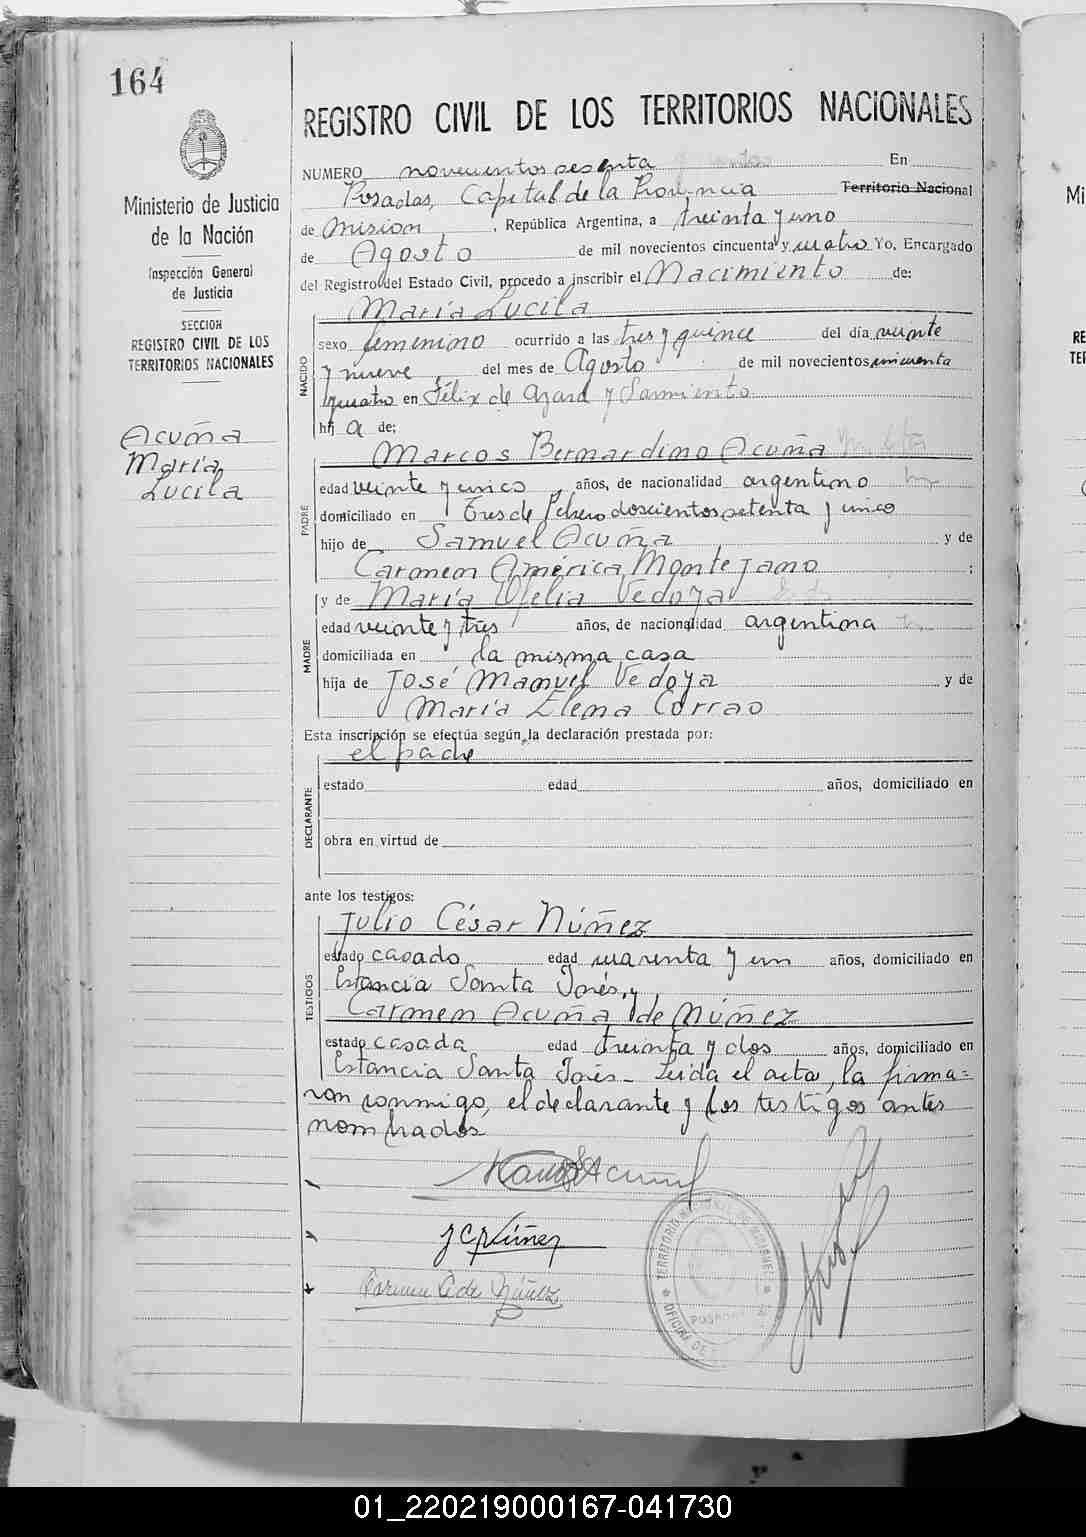 164
Ministerio de Justicia
de la Nación
Inspección General
de Justicia
SECCION
REGISTRO CIVIL DE LOS
TERRITORIOS NACIONALES
Acuña
María
Lucila
REGISTRO CIVIL DE LOS TERRITORIOS NACIONALES
NUMERO novecientos sesenta En
Posadas, Capital de la Provincia Territorio Nacional
de Mision, República Argentina, a treinta y uno
de Agosto de mil novecientos cincuenta y cuatro Yo, Encargado
del Registro del Estado Civil, procedo a inscribir el Nacimiento de:
María Lucila
NACIDO
sexo femenino ocurrido a las tres y quince del día veinte
y nueve del mes de Agosto de mil novecientos cincuenta
y cuatro en Félix de Azara y Sarmiento
hij a de;
Marcos Bernardino Acuña
PADRE
edad veinte y cinco, años, de nacionalidad argentino
domiciliado en Tres de Febrero doscientos setenta y cinco
hijo de Samuel Acuña y de
Carmen América Montejano ;
y de María Ofelia Vedoya
MADRE
edad veinte y tres años, de nacionalidad argentina
domiciliada en la misma casa
hija de José Manuel Vedoya y de
María Elena Corrao
Esta inscripción se efectúa según la declaración prestada por:
el padre
DECLARANTE
estado edad años, domiciliado en
obra en virtud de
ante los testigos:
Julio César Núñez
TESTIGOS
estado casado edad cuarenta y un años, domiciliado en
Estancia Santa Inés, y
Carmen Acuña de Núñez
estado casada edad treinta y dos años, domiciliado en
Estancia Santa Inés - Leida el acta, la firma=
ron conmigo, el declarante y los testigos antes
nombrados
J C Núñez
Carmen A de Núñez
POSADAS
01_220219000167-041730